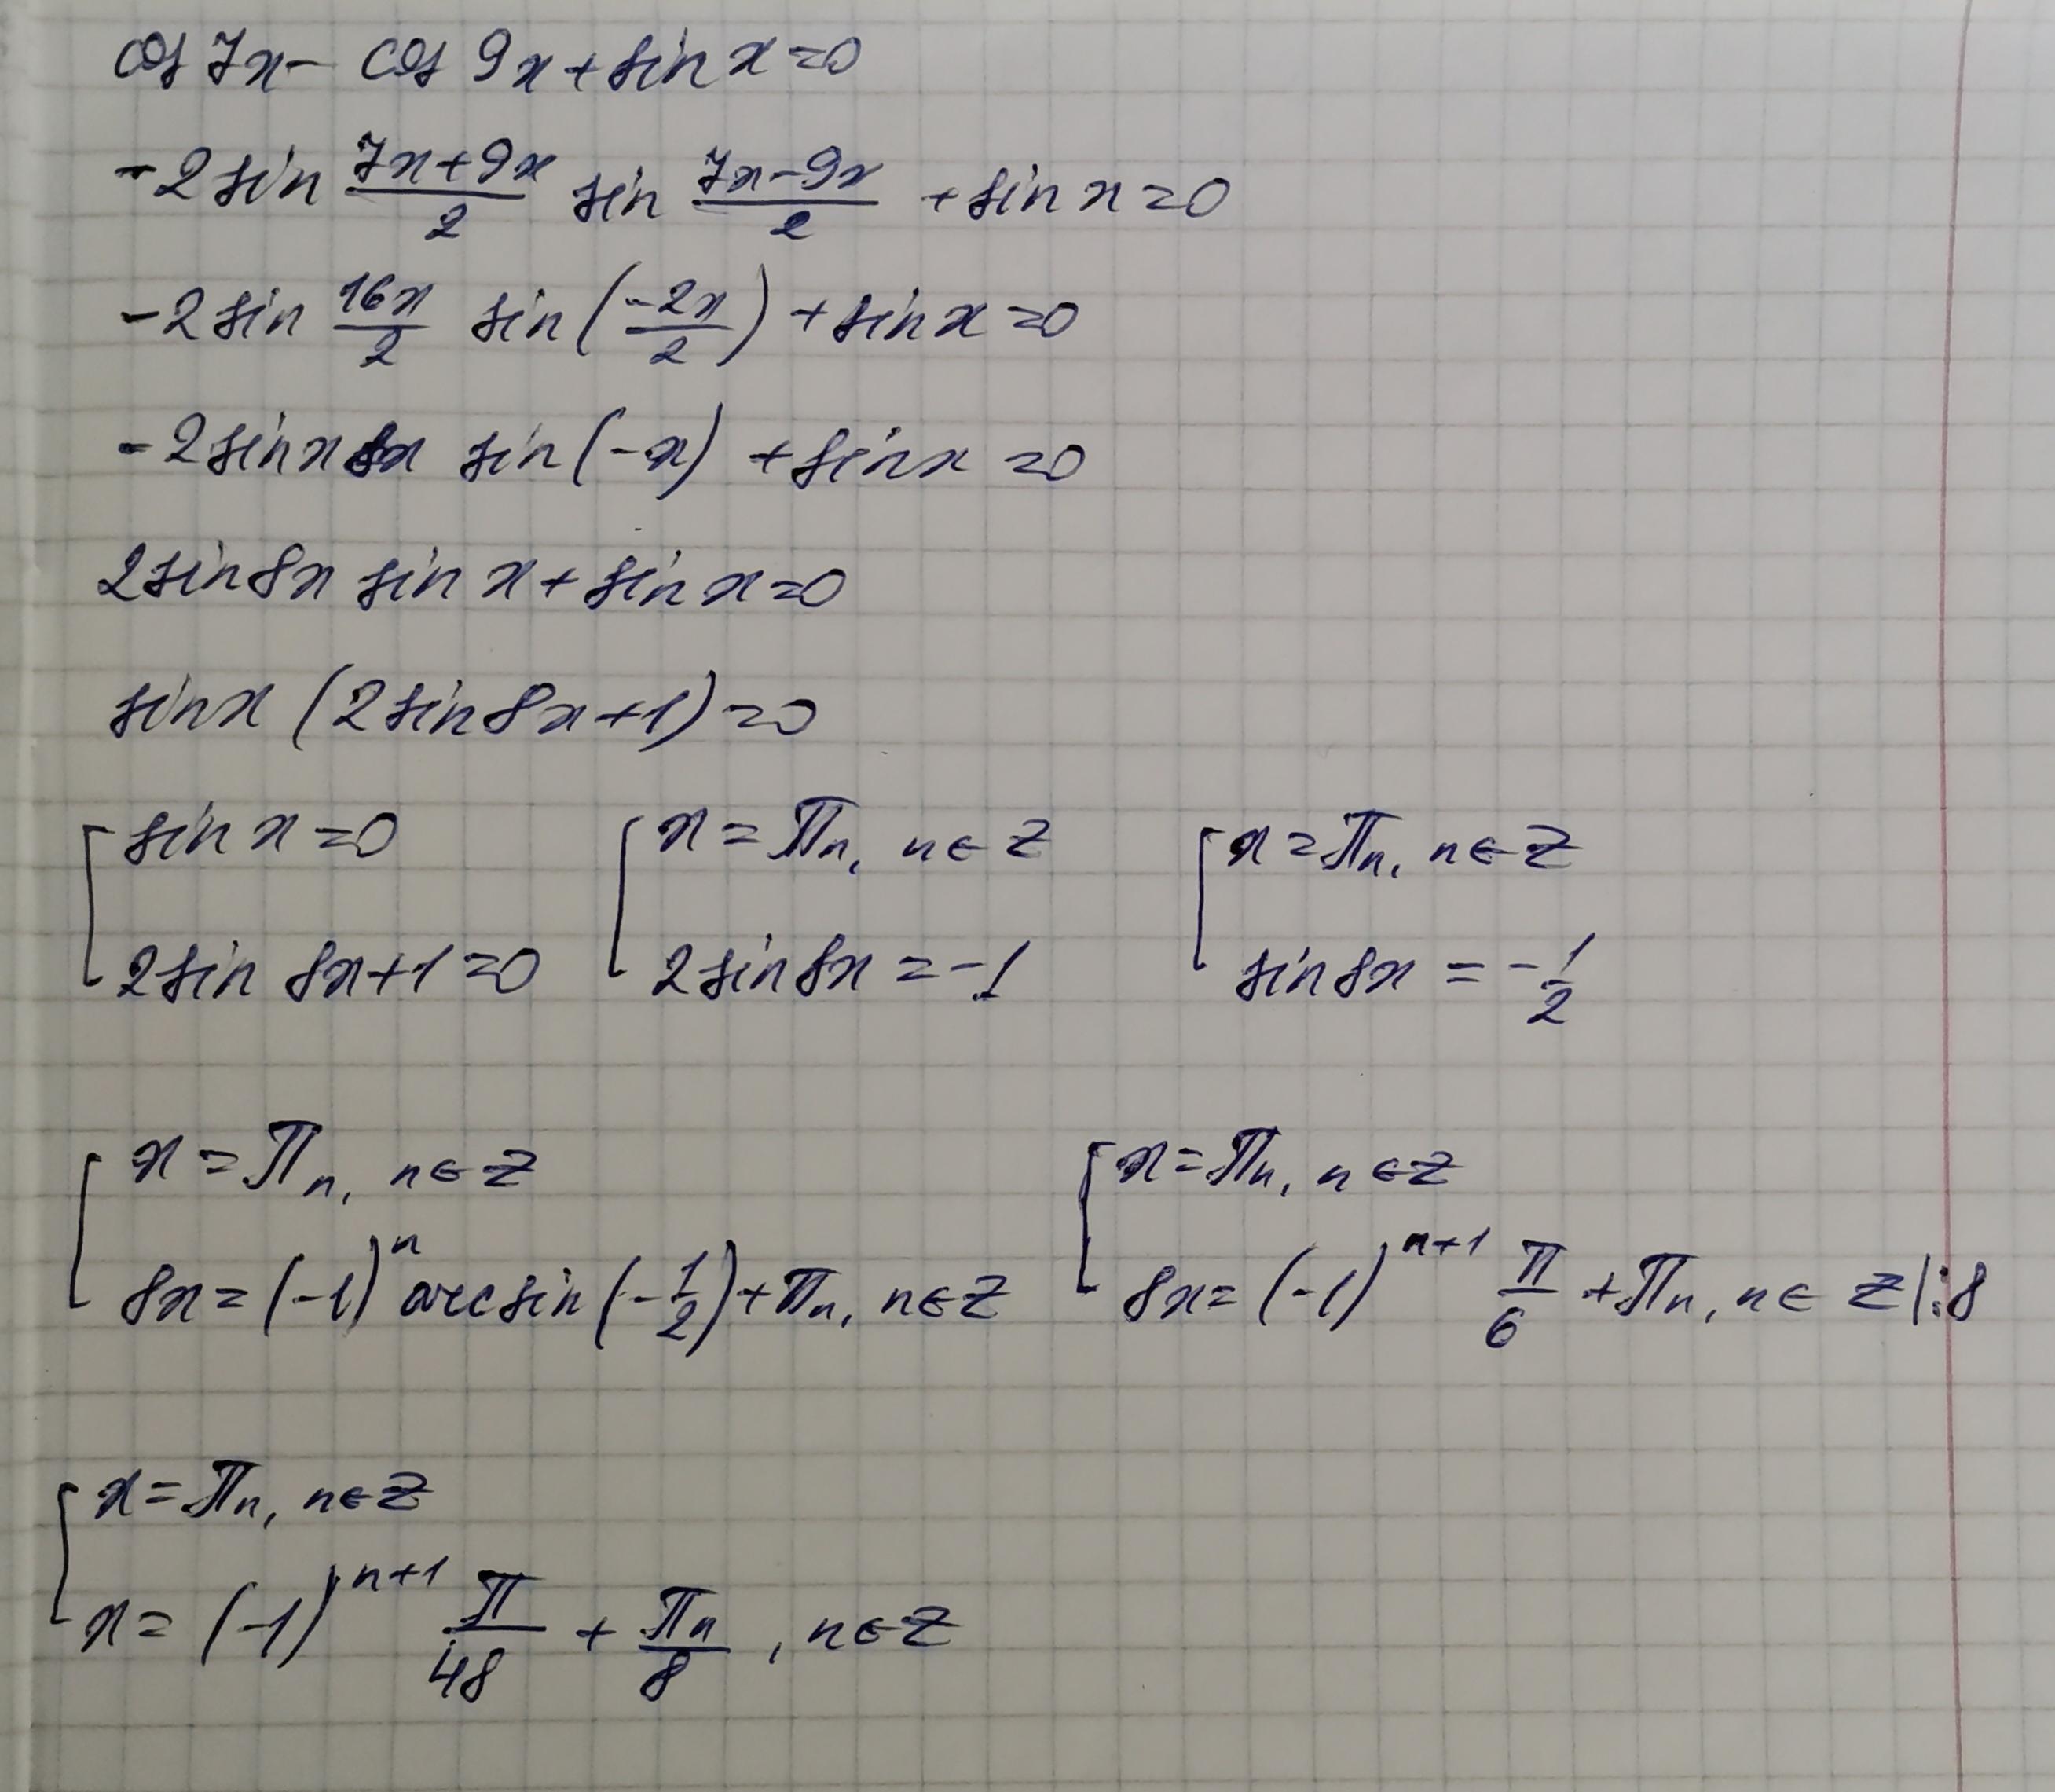 cos 7x - cos 9x + sin x = 0
-2 sin (7x+9x)/2 sin (7x-9x)/2 + sin x = 0
-2 sin 16x/2 sin (-2x/2) + sin x = 0
-2 sin x 8x sin (-x) + sin x = 0
2 sin 8x sin x + sin x = 0
sin x (2 sin 8x + 1) = 0
[ sin x = 0 [ x = πn, n ∈ Z [ x = πn, n ∈ Z
2 sin 8x + 1 = 0 2 sin 8x = -1 sin 8x = -1/2
[ x = πn, n ∈ Z [ x = πn, n ∈ Z
8x = (-1)^n arcsin (-1/2) + πn, n ∈ Z 8x = (-1)^(n+1) π/6 + πn, n ∈ Z |:8
[ x = πn, n ∈ Z
x = (-1)^(n+1) π/48 + πn/8, n ∈ Z